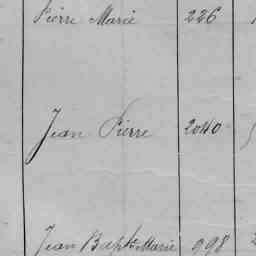 Pierre Marie 226
Jean Pierre 2040
Jean Bapte Marie 998